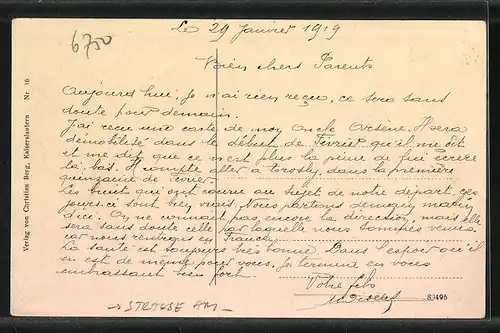 6750
Le 29 Janvier 1919
Bien chers Parents
Aujourd'hui, Je n'ai rien reçu, ce sera sans
doute pour demain.
J'ai recu une carte de mon Oncle Arsène. Il sera
démobilisé dans le début de Février qu'il me dit
et me dit que ce n'est plus la peine de lui écrire
là-bas. Il compte aller à Crosly, dans la première
quinzaine de Février.
Les bruit qui ont couru au sujet de notre départ, ces
jours-ci sont bien vrais. Nous partons demain matin
d'ici. On ne connait pas encore la direction, mais elle
sera sans doute celle par laquelle nous sommes venus
car nous rentrons en France.
La santé est toujours très bonne. Dans l'espoir qu'il
en est de même pour vous, Je termine en vous
embrassant bien fort.
Votre fils
Verlag von Christian Berg, Kaiserslautern Nr. 16
83496